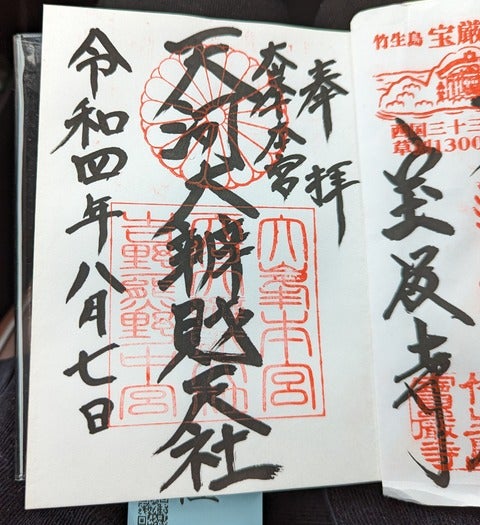 奉拝
大峯本宮
天河大辨財天社
令和四年八月七日
大峯本宮
吉野熊野中宮
竹生島 宝厳
西国三十三
草創1300
宝厳寺